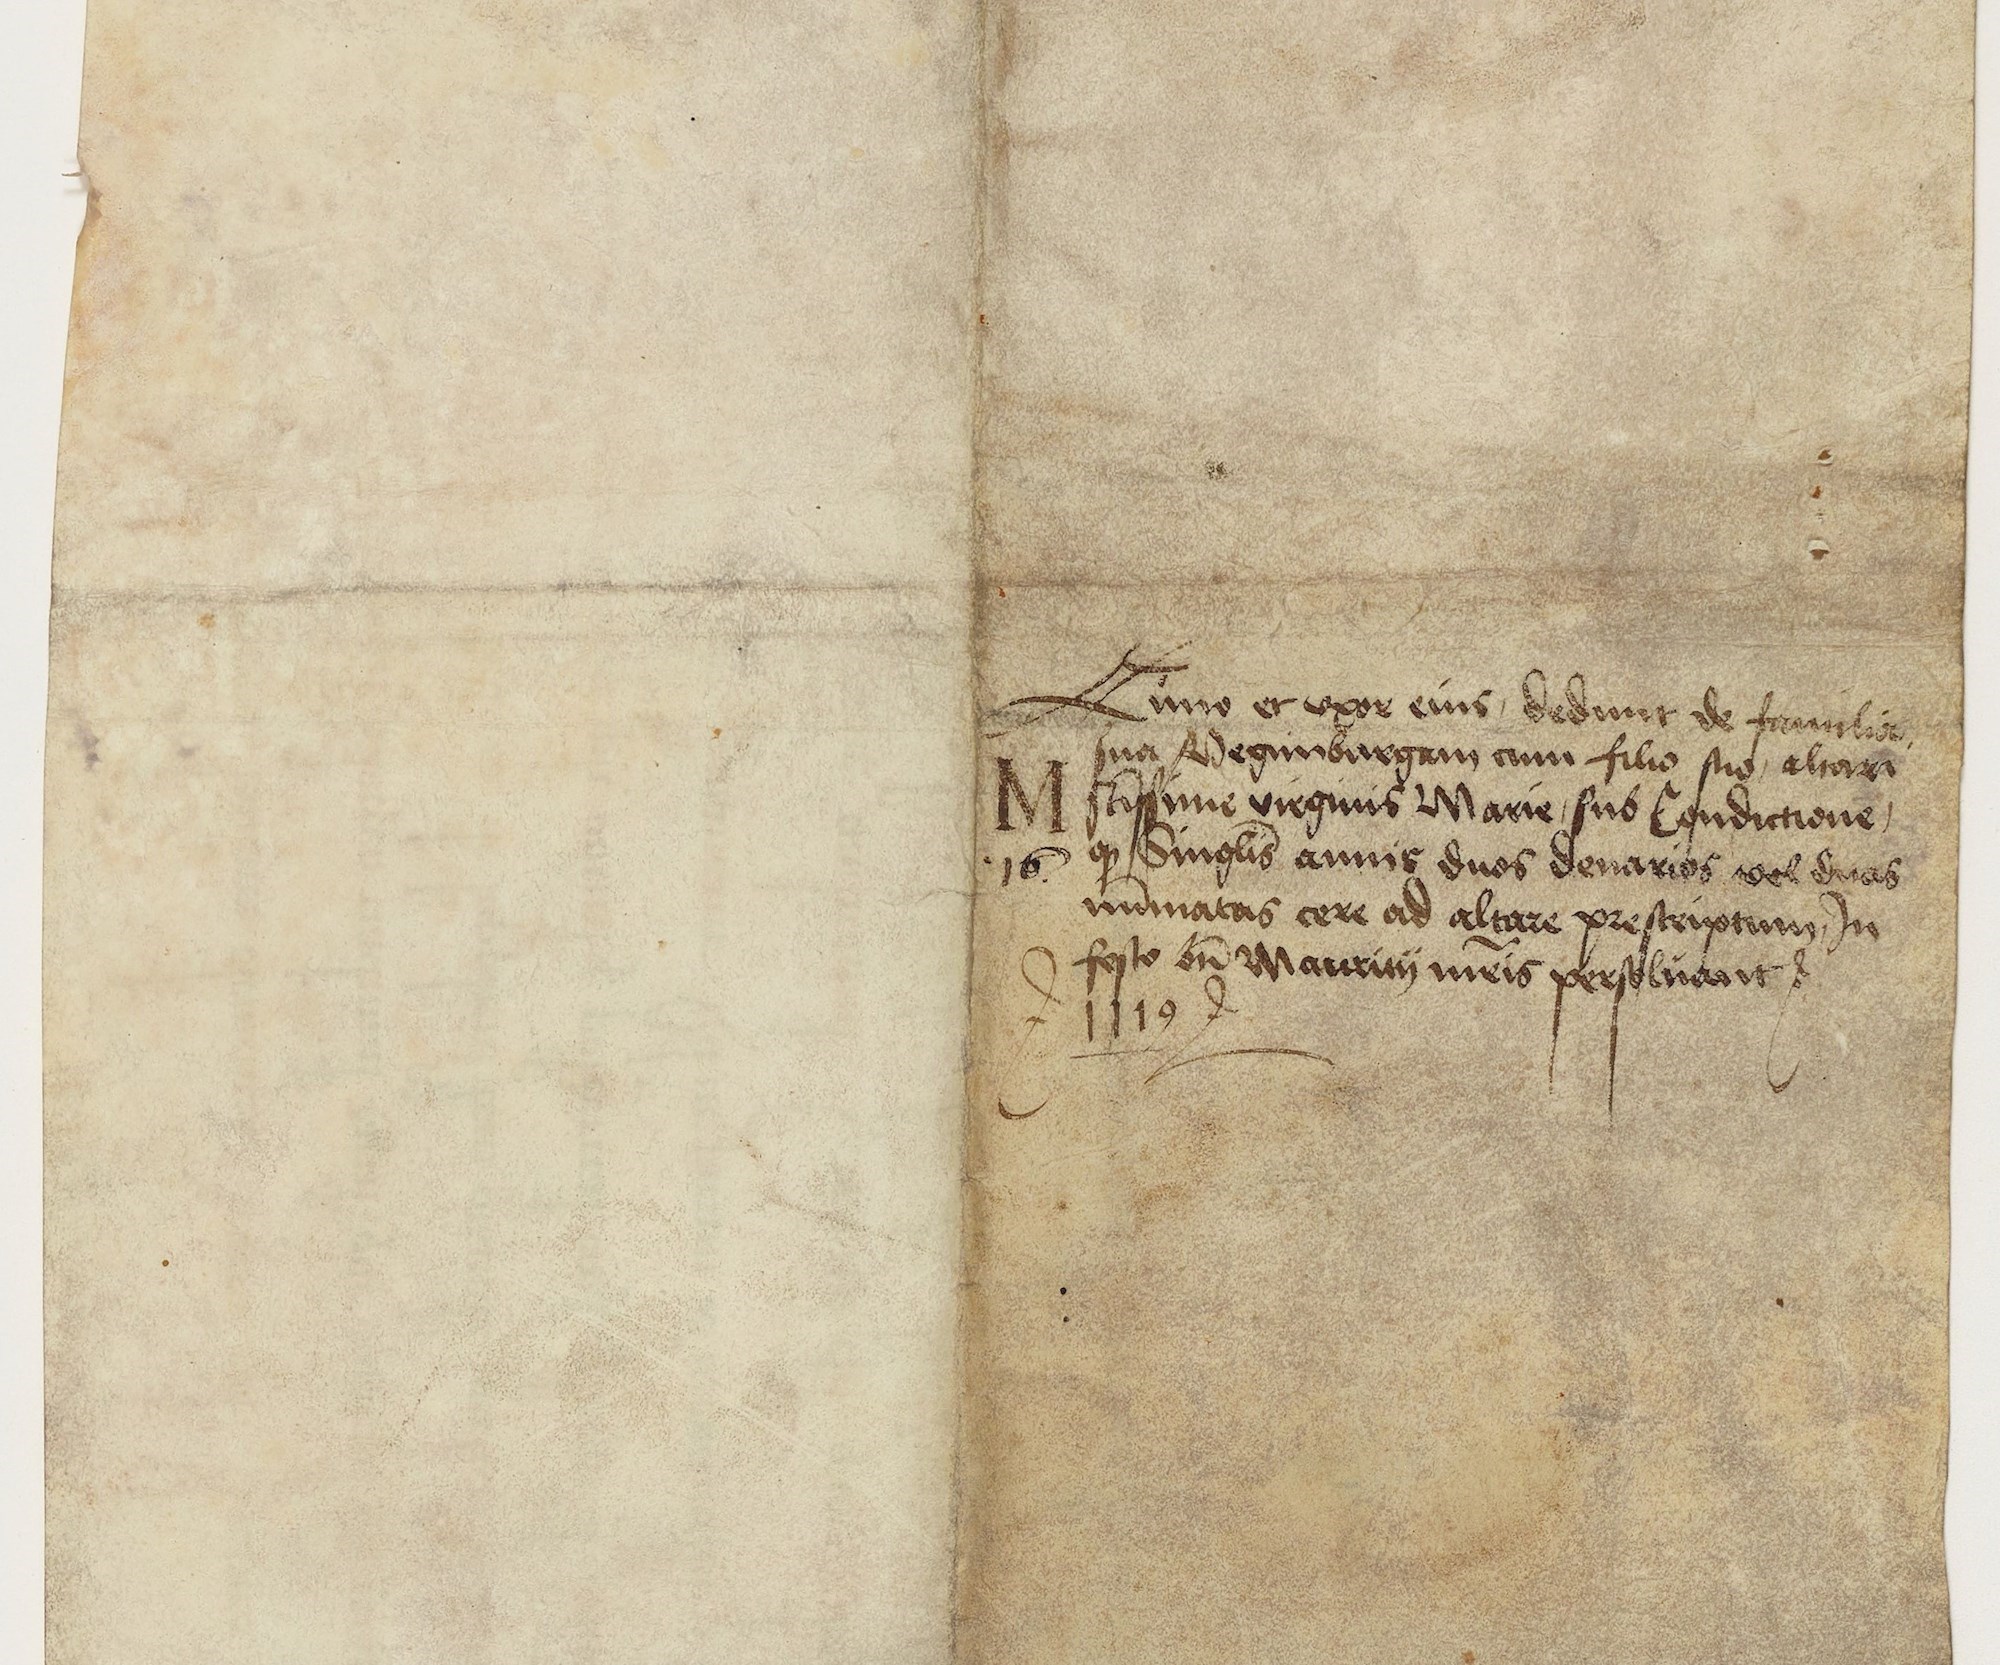 Cuno et vxor eius, dedunt de familia
sua Reginburgam cum filio suo, altari
M
sctissime virginis Marie, sub Condictione,
16.
qꝫ Singlis annis duos denarios vel duas
nūmatas cere ad altare prescriptum, In
festo bti Mauritij mris persoluant
1119